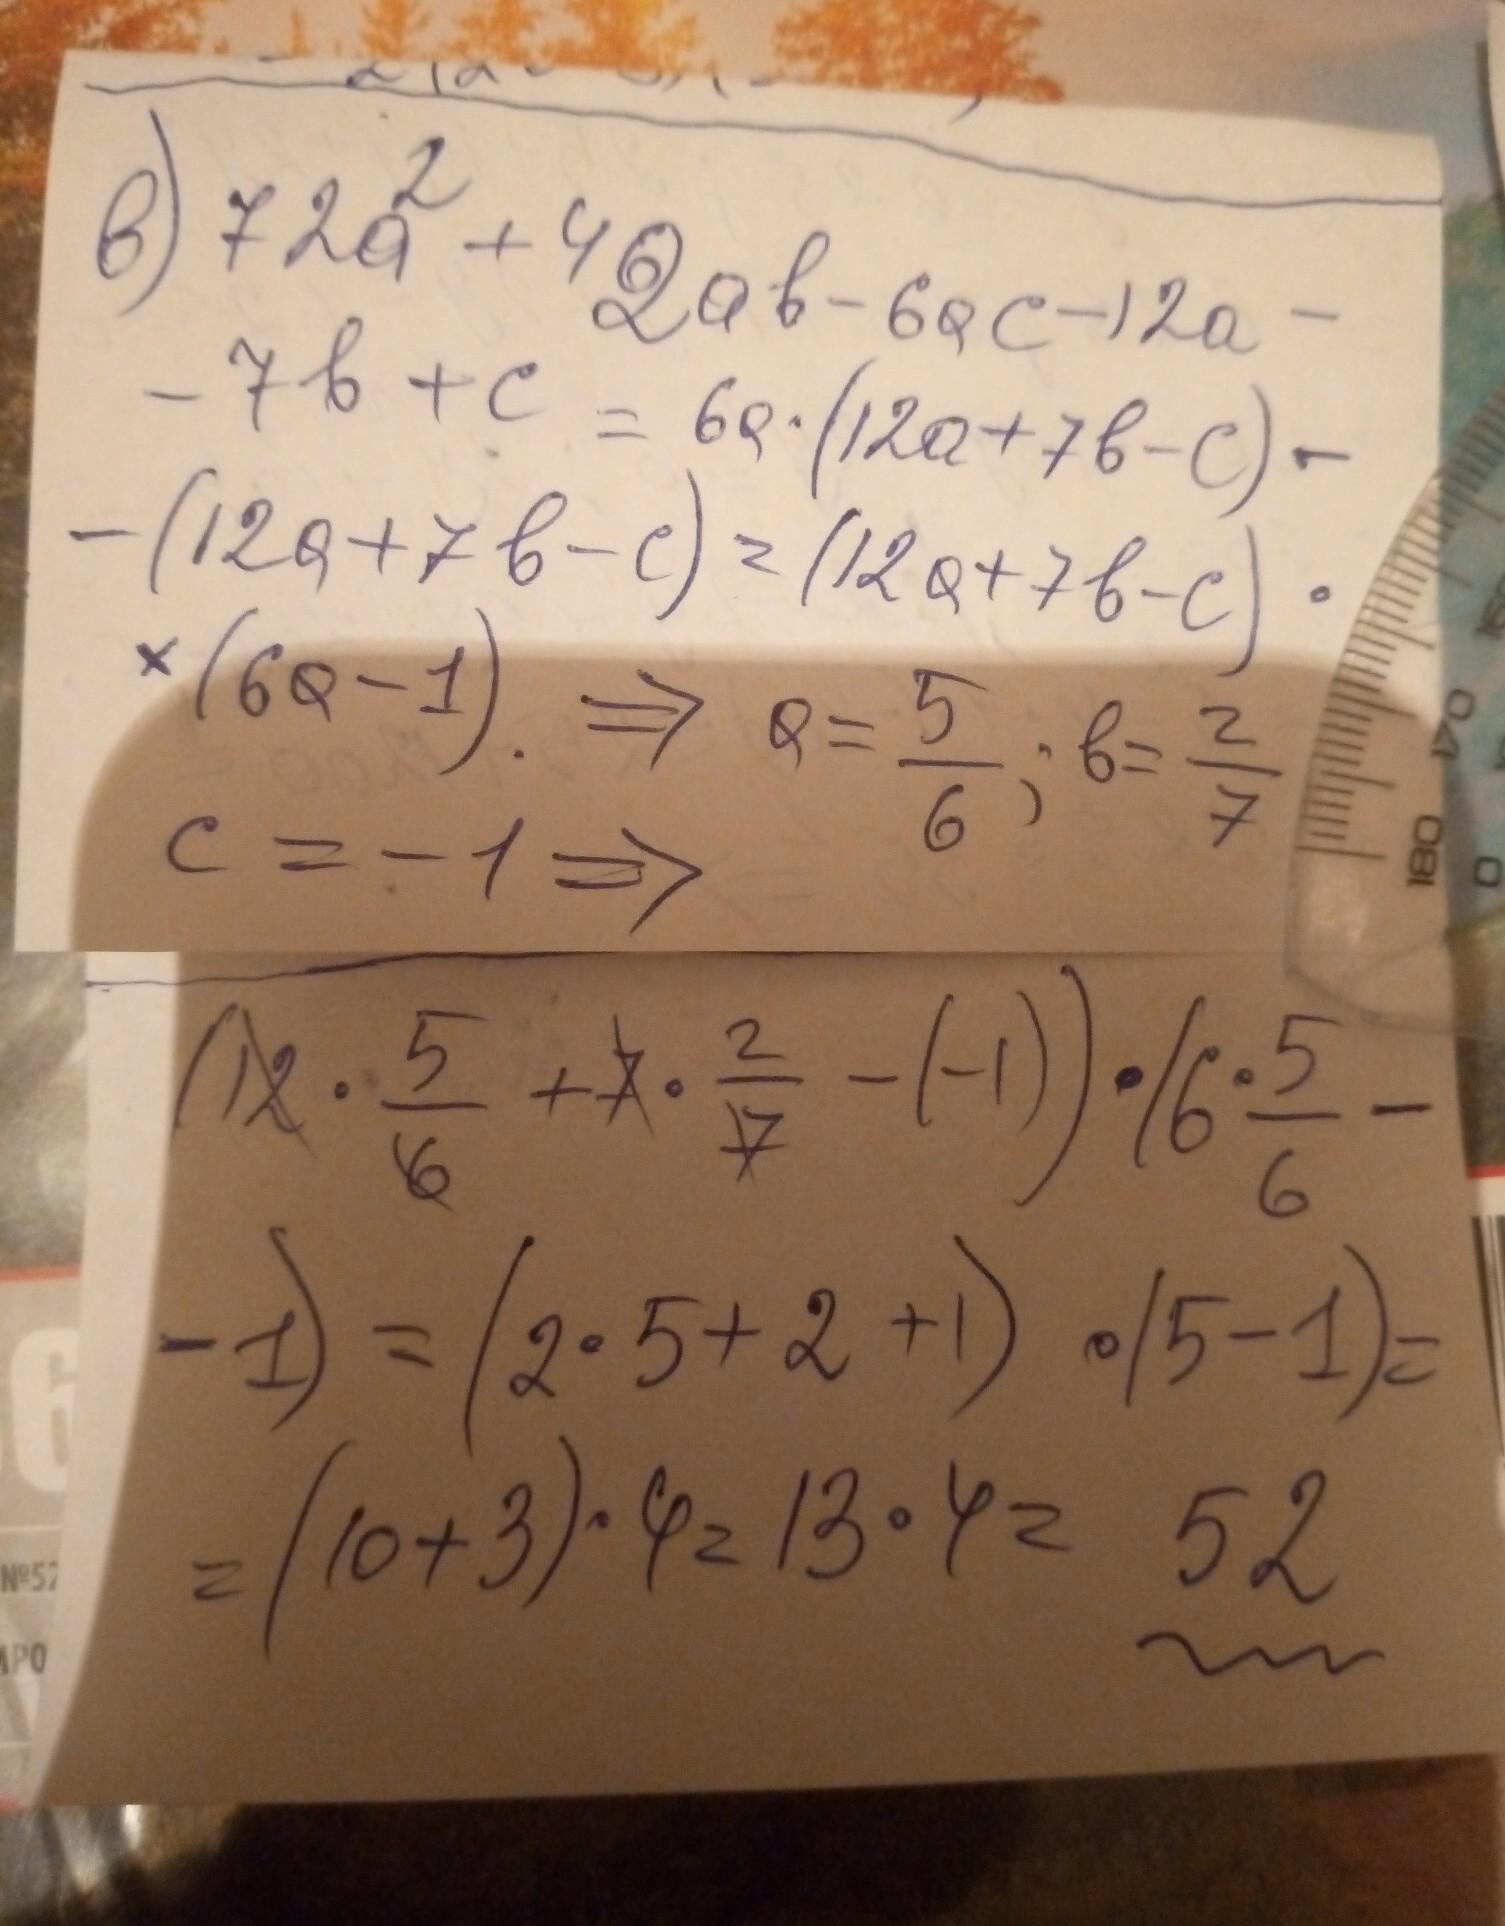 в) 72a² + 42ab - 6ac - 12a -
- 7b + c = 6a·(12a + 7b - c) -
- (12a + 7b - c) = (12a + 7b - c) ·
× (6a - 1). ⇒ a = 5/6; b = 2/7
c = -1 ⇒
(12 · 5/6 + 7 · 2/7 - (-1)) · (6 · 5/6 -
- 1) = (2 · 5 + 2 + 1) · (5 - 1) =
= (10 + 3) · 4 = 13 · 4 = 52
04
180
0
6
№52